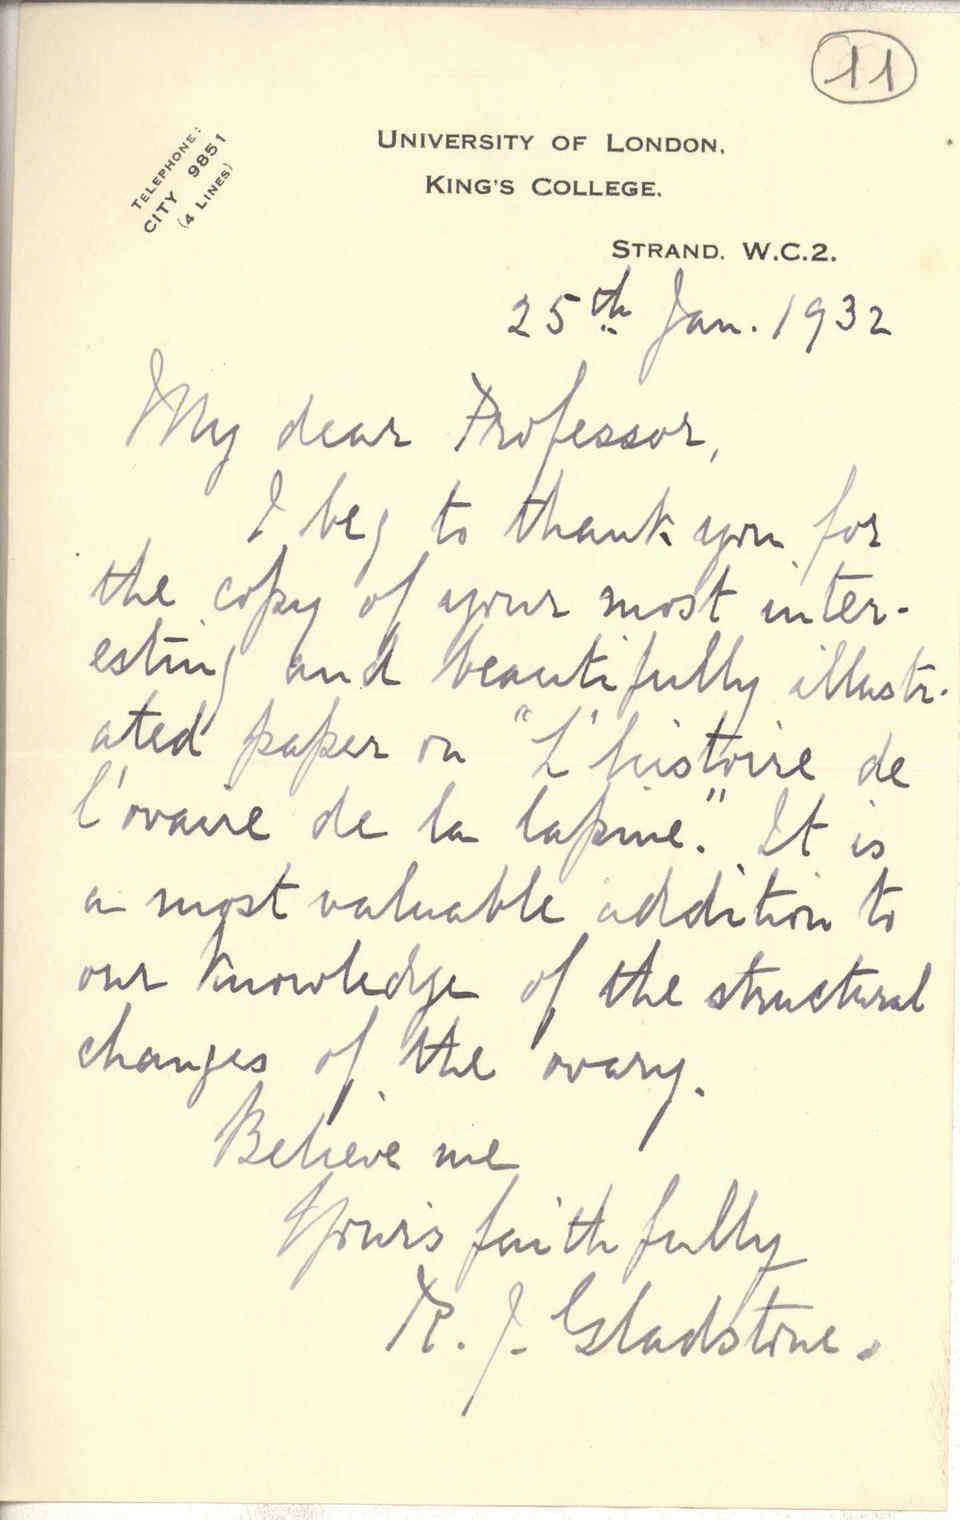 11
TELEPHONE:
CITY 9851
(4 LINES)
UNIVERSITY OF LONDON,
KING'S COLLEGE.
STRAND. W.C.2.
25th Jan. 1932
My dear Professor,
I beg to thank you for
the copy of your most inter-
esting and beautifully illustr-
ated paper on "L'histoire de
l'ovaire de la lapine." It is
a most valuable addition to
our knowledge of the structural
changes of the ovary.
Believe me
Yours faithfully
R. J. Gladstone.